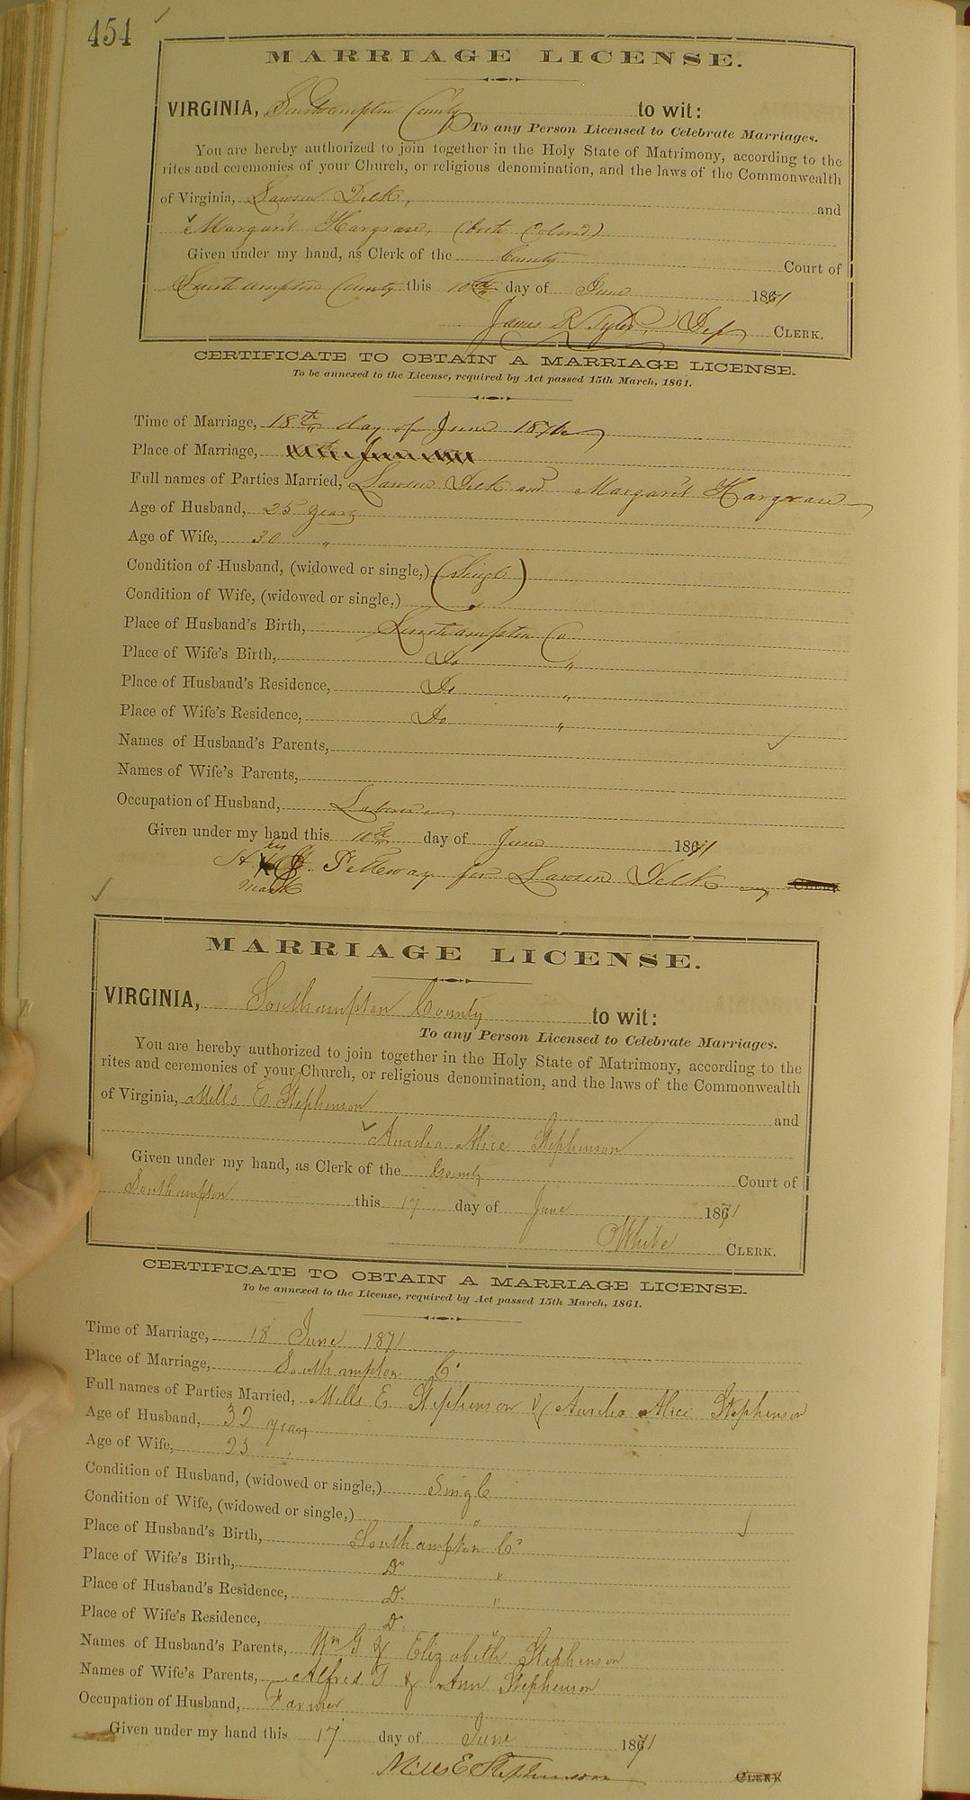 454
MARRIAGE LICENSE.
VIRGINIA, Southampton County to wit:
To any Person Licensed to Celebrate Marriages.
You are hereby authorized to join together in the Holy State of Matrimony, according to the
rites and ceremonies of your Church, or religious denomination, and the laws of the Commonwealth
of Virginia, Lawson Delk, and
Margaret Hargrave, (both Colored)
Given under my hand, as Clerk of the County Court of
Southampton County this 10th day of June 1871
James R Tyler, Dep CLERK.
CERTIFICATE TO OBTAIN A MARRIAGE LICENSE.
To be annexed to the License, required by Act passed 15th March, 1861.
Time of Marriage, 18th day of June 1871
Place of Marriage,
Full names of Parties Married, Lawson Delk and Margaret Hargrave
Age of Husband, 25 years
Age of Wife, 30 "
Condition of Husband, (widowed or single,) (Single)
Condition of Wife, (widowed or single,)
Place of Husband's Birth, Southampton Co
Place of Wife's Birth, Do "
Place of Husband's Residence, Do "
Place of Wife's Residence, Do "
Names of Husband's Parents,
Names of Wife's Parents,
Occupation of Husband, Laborer
Given under my hand this 10th day of June 1871
for Lawson Delk
mark
MARRIAGE LICENSE.
VIRGINIA, Southampton County to wit:
To any Person Licensed to Celebrate Marriages.
You are hereby authorized to join together in the Holy State of Matrimony, according to the
rites and ceremonies of your Church, or religious denomination, and the laws of the Commonwealth
of Virginia, Mills E Stephenson and
Aurelia Alice Stephenson
Given under my hand, as Clerk of the County Court of
Southampton this 17 day of June 1871
White CLERK.
CERTIFICATE TO OBTAIN A MARRIAGE LICENSE.
To be annexed to the License, required by Act passed 15th March, 1861.
Time of Marriage, 18 June 1871
Place of Marriage, Southampton Co
Full names of Parties Married, Mills E Stephenson & Aurelia Alice Stephenson
Age of Husband, 32 years
Age of Wife, 23
Condition of Husband, (widowed or single,) Single
Condition of Wife, (widowed or single,) "
Place of Husband's Birth, Southampton Co
Place of Wife's Birth, Do "
Place of Husband's Residence, Do "
Place of Wife's Residence, Do "
Names of Husband's Parents, Wm G & Elizabeth Stephenson
Names of Wife's Parents, Alfred T & Ann Stephenson
Occupation of Husband, Farmer
Given under my hand this 17 day of June 1871
Mills E Stephenson CLERK